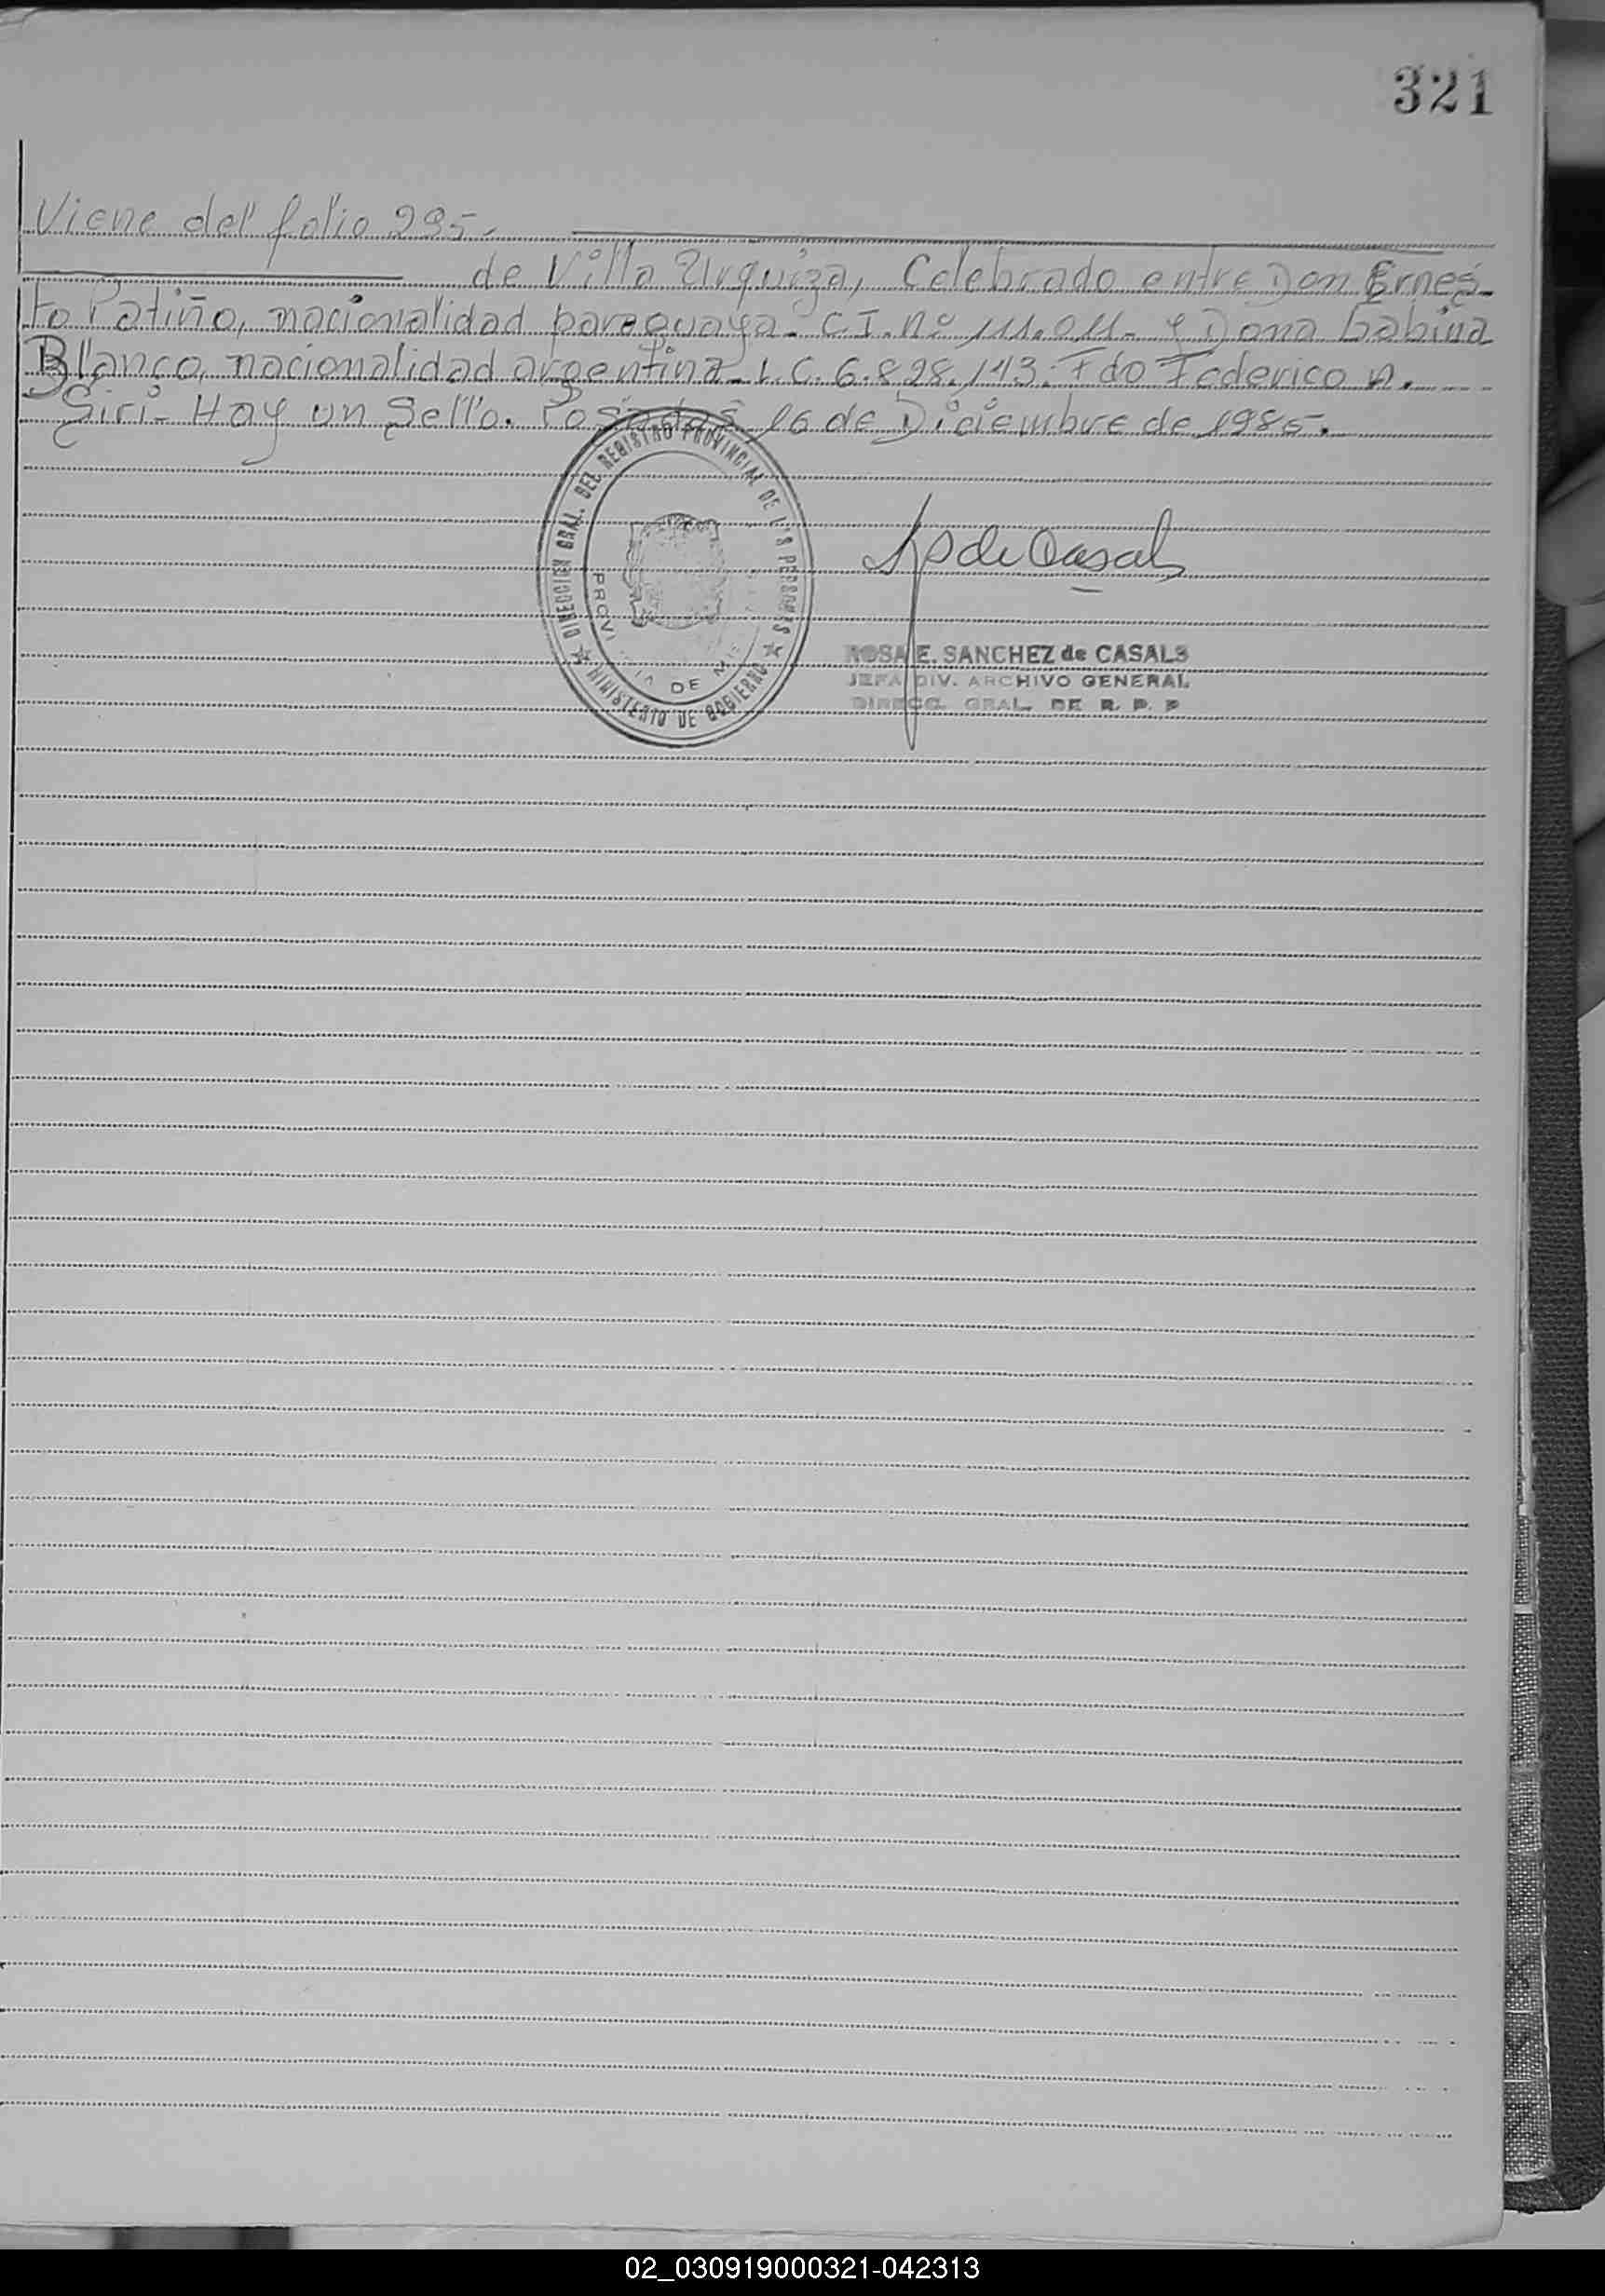 321
Viene del folio 295.-
de Villa Urquiza, Celebrado entre Don Ernes-
to Patiño, nacionalidad paraguaya- C.I. Nº 111.011.- y Dona Sabina
Blanco, nacionalidad argentina- L.C. 6.828.143. Fdo Federico A.
Siri- Hay un Sello. Posadas, 16 de Diciembre de 1985.
DIRECCION GRAL. DEL REGISTRO PROVINCIAL DE LAS PERSONAS
MINISTERIO DE GOBIERNO
DE
de Casals
ROSA E. SANCHEZ de CASALS
JEFA DIV. ARCHIVO GENERAL
DIRECC. GRAL. DE R. P. P
02_030919000321-042313